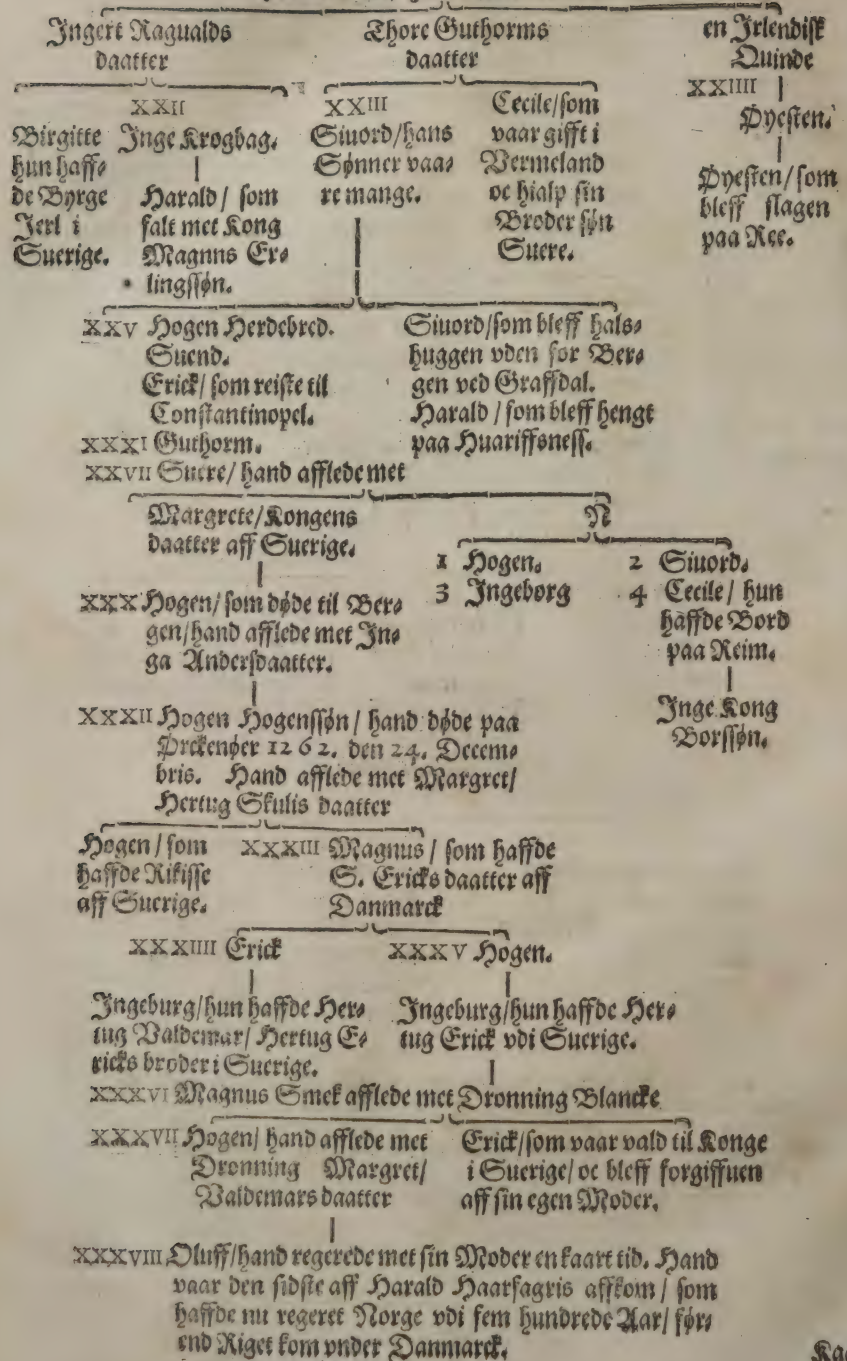 Ingert Ragualds
daatter
Thore Guthorms
daatter
en Irlendisk
Quinde
XXII
Birgitte
hun haff⸗
de Byrge
Jerl i
Suerige.
Inge Krogbag.
Harald / som
falt met Kong
Magnns Er⸗
lingssøn.
XXIII
Siuord/hans
Sønner vaa⸗
re mange.
Cecile/som
vaar gifft i
Vermeland
oc hialp sin
Broder søn
Suere.
XXIIII
Øyesten.
Øyesten/som
bleff slagen
paa Ree.
XXV Hogen Herdebred.
Suend.
Erick/ som reiste til
Constantinopel.
XXXI Guthorm.
XXVII Suere/ hand afflede met
Siuord/som bleff hals⸗
huggen vden for Ber⸗
gen ved Graffdal.
Harald / som bleff hengt
paa Huariffsness.
Margrete/Kongens
daatter aff Suerige.
N
1 Hogen.
2 Siuord.
3 Ingeborg
4 Cecile/ hun
haffde Bord
paa Reim.
Inge Kong
Borssøn.
XXX Hogen/ som døde til Ber⸗
gen/hand afflede met In⸗
ga Andersdaatter.
XXXII Hogen Hogenssøn / hand døde paa
Ørckenøer 1262. den 24. Decem⸗
bris. Hand afflede met Margret/
Hertug Skulis daatter
Hogen / som
haffde Rikisse
aff Suerige.
XXXIII Magnus / som haffde
S. Ericks daatter aff
Danmarck
XXXIIII Erick
XXXV Hogen.
Ingeburg/hun haffde Her⸗
tug Valdemar/ Hertug E⸗
ricks broder i Suerige.
Ingeburg/hun haffde Her⸗
tug Erick vdi Suerige.
XXXVI Magnus Smek afflede met Dronning Blancke
XXXVII Hogen/ hand afflede met
Dronning Margret/
Valdemars daatter
Erick/som vaar vald til Konge
i Suerige/ oc bleff forgiffuen
aff sin egen Moder.
XXXVIII Oluff/hand regerede met sin Moder en kaart tid. Hand
vaar den sidste aff Harald Haarfagris affkom / som
haffde nu regeret Norge vdi fem hundrede Aar/ før⸗
end Riget kom vnder Danmarck.